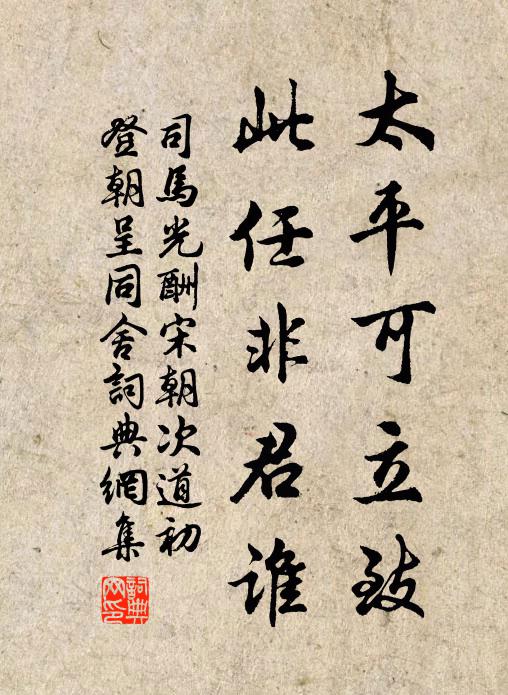 太平可立致
此任非君誰
司馬光酬宋朝次道初
登朝呈同舍詞典網集
詞典
网印